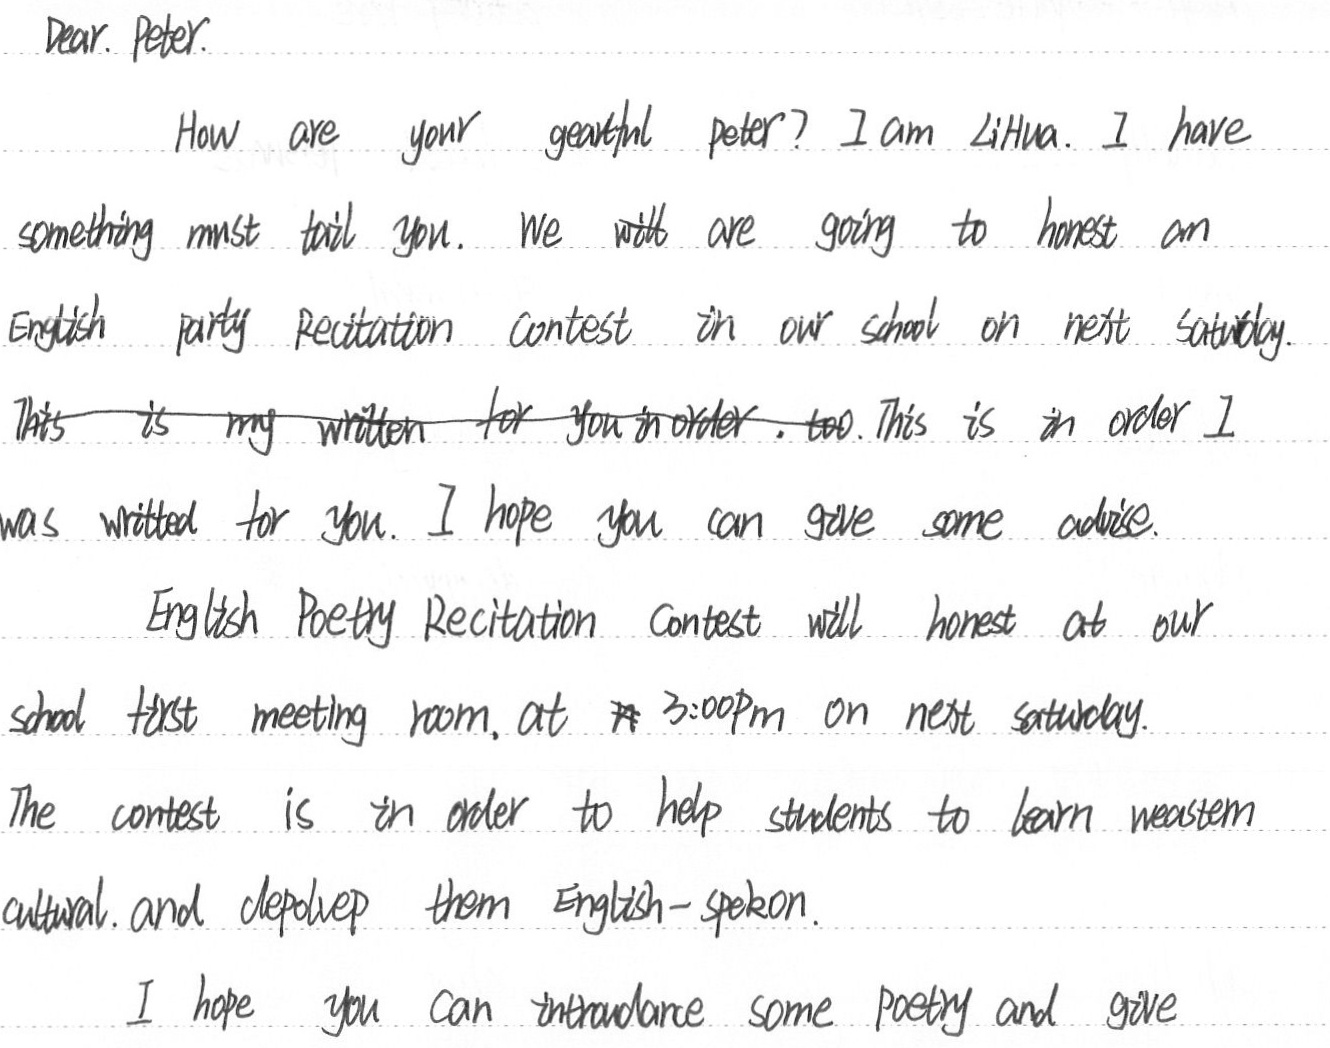 Dear. Peter.
How are your geartful peter? I am LiHua. I have
something must tail you. We will are going to honest an
English party Recitation Contest in our school on next saturday.
This is my written for you in order . too. This is in order I
was writted for you. I hope you can give some advise.
English Poetry Recitation Contest will honest at our
school first meeting room, at 3:00pm on next saturday.
The contest is in order to help students to learn weastern
cultural. and depolvep them English-spekon.
I hope you can introudance some poetry and give